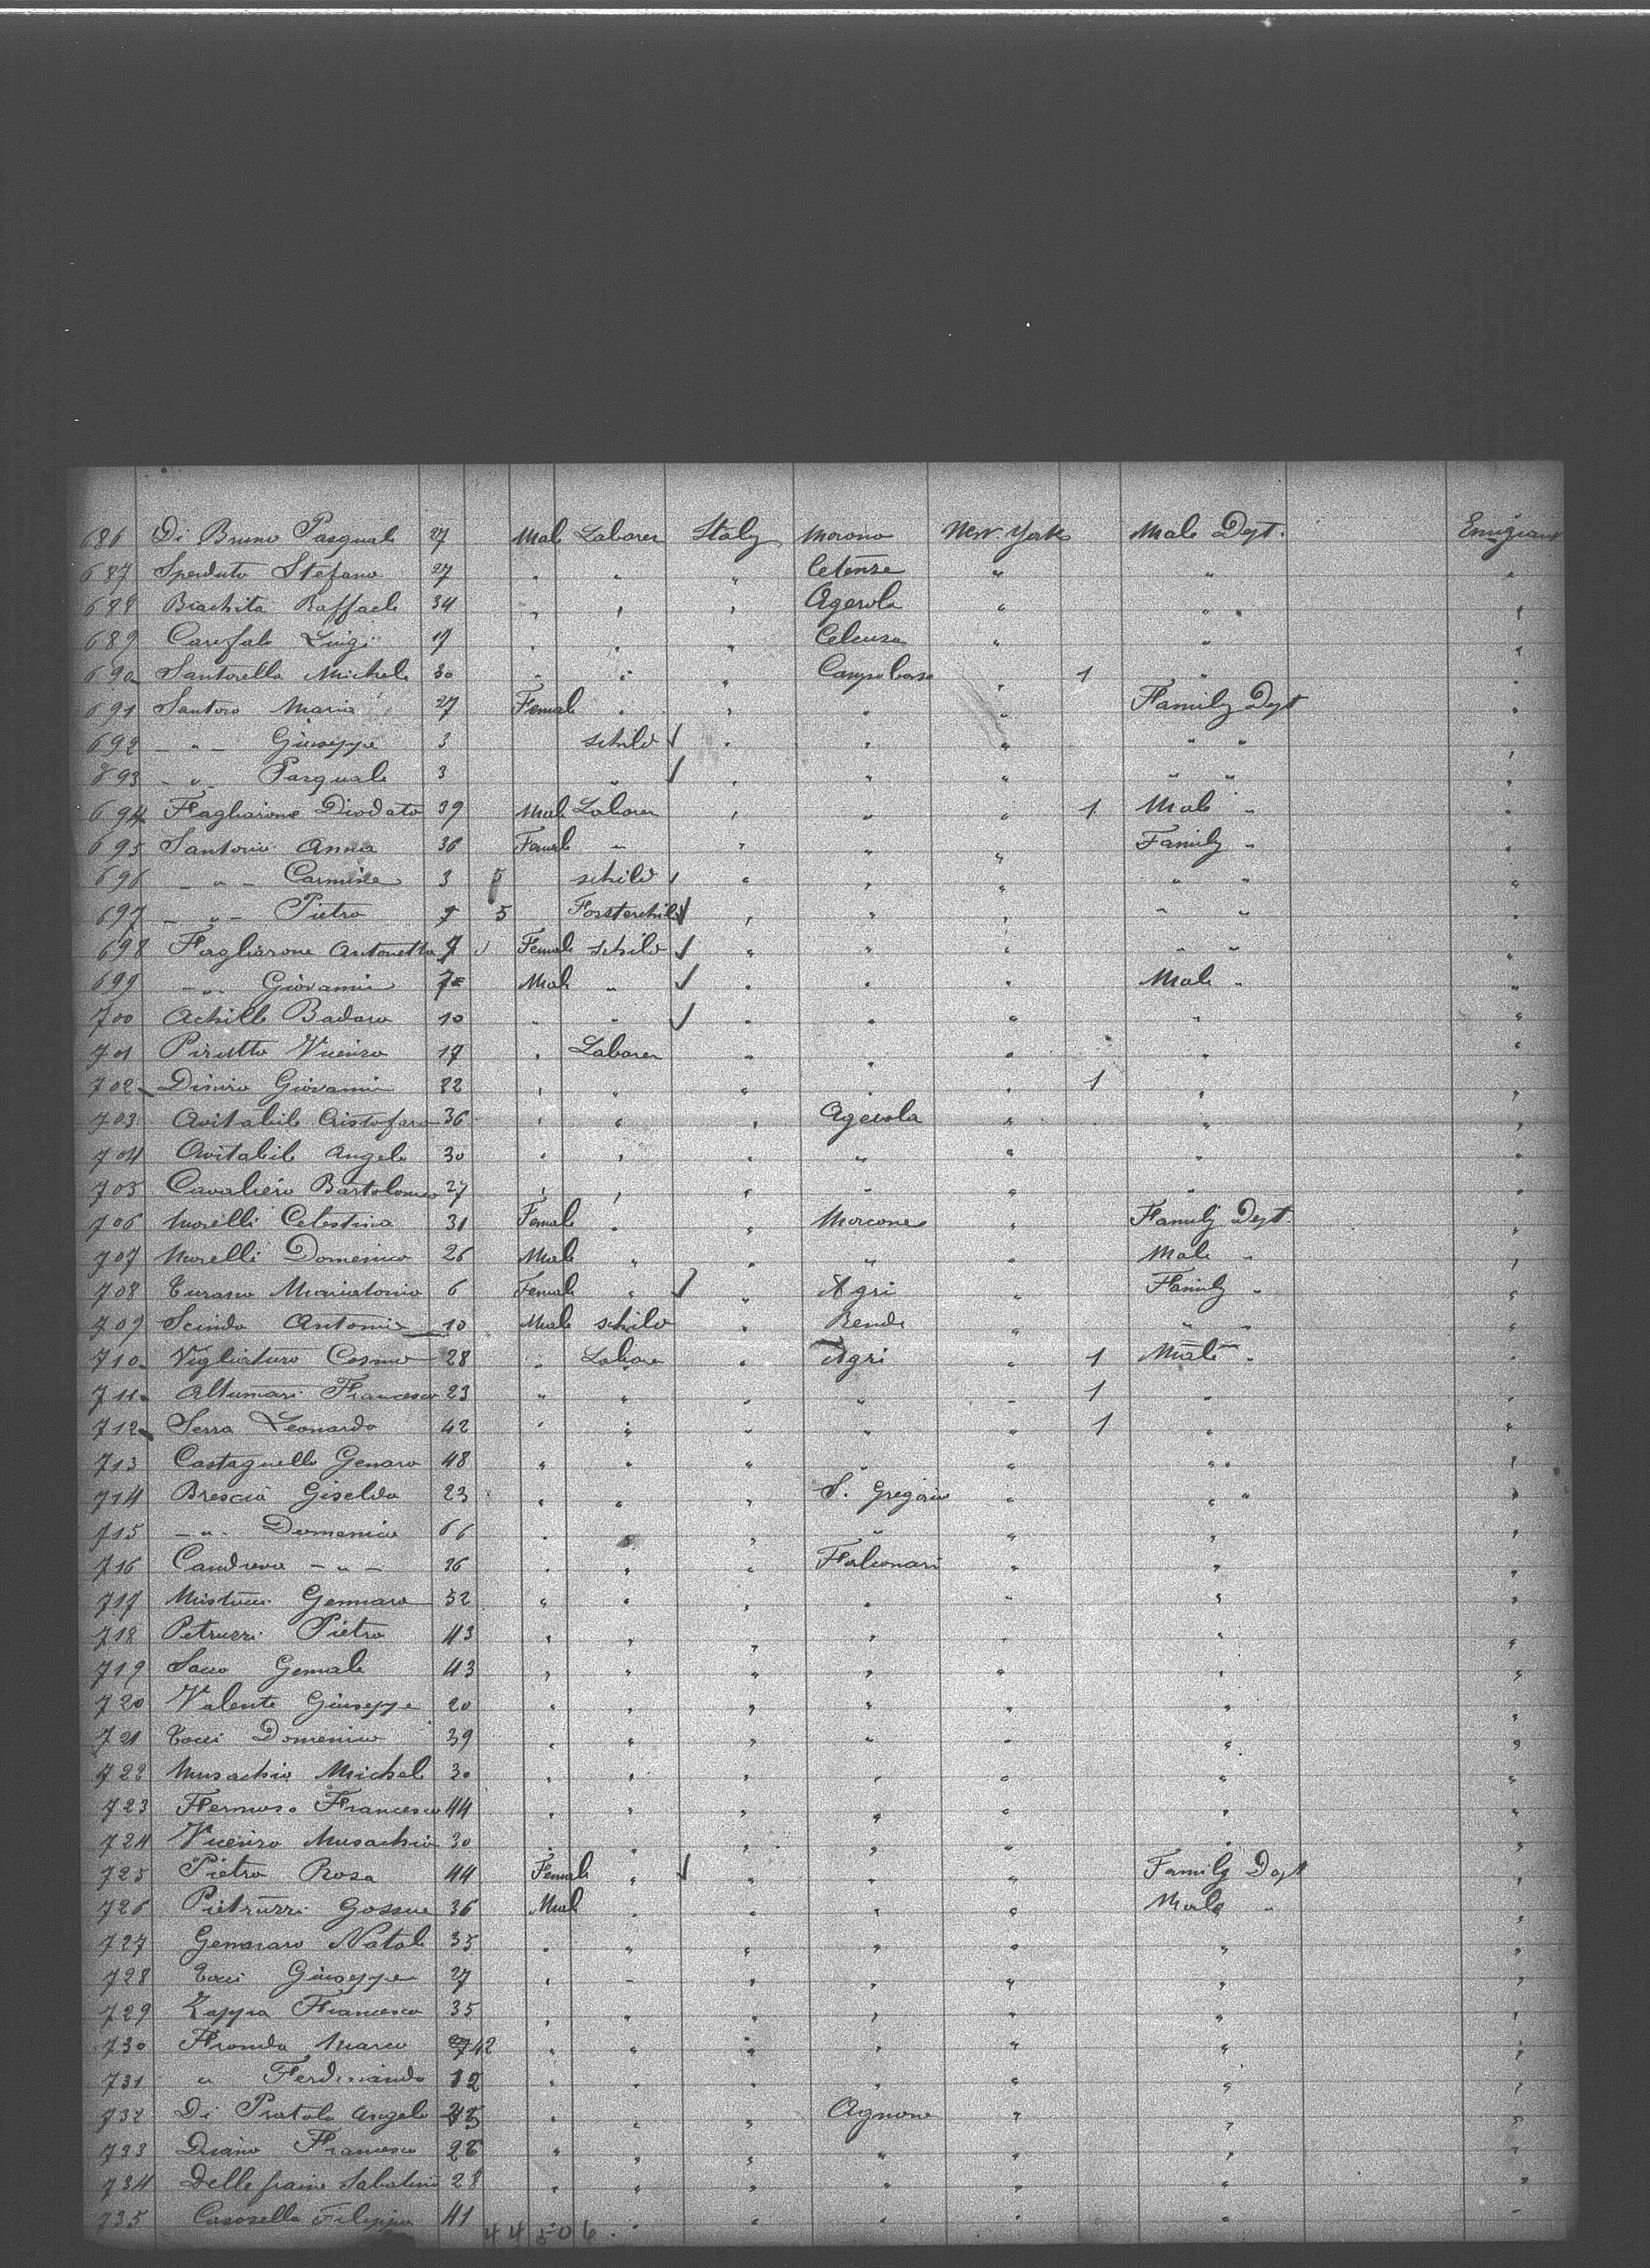 686 Di Bruno Pasquale 27 Male Laborer Italy Morono New-York Male Dept. Emigrant
687 Sperduto Stefano 27 " " " Celense " " "
688 Biachita Raffaele 34 " " " Agerola " " " "
689 Carofalo Luigi 19 " " " Celensa " " "
690 Santorella Michele 30 " " " Campobasso " 1 " "
691 Santoro Maria 27 Female " " " " Family Dept "
692 - " - Giuseppe 3 schild √ " " " " " "
693 - " - Pasquale 3 " √ " " " " " "
694 Fagliarone Diodato 39 Male Laborer " " " 1 Male " "
695 Santorio Anna 36 Female " " " " Family " "
696 - " - Carmine 3 schild √ " " " " " "
697 - " - Pietro 5 Forsterchild √ " " " " " "
698 Fagliarone Antonetta 9 √ Female schild √ " " " " " "
699 - " - Giovanni 7 Male " √ " " " Male " "
700 Achille Badaro 10 " " √ " " " " "
701 Pirotto Vicenzo 17 " Laborer " " " " "
702 Diniro Giovanni 22 " " " " " 1 " "
703 Avitabile Cristofaro 36 " " " Agerola " " "
704 Avitabile Angelo 30 " " " " " " "
705 Cavaliero Bartolomeo 27 " " " " " " "
706 Morelli Celestina 31 Female " " Morcone " Family Dept. "
707 Morelli Domenico 26 Male " " " " Male " "
708 Turano Mariatonia 6 Female " √ " Agri " Family " "
709 Scinda Antonio 10 Male schild " Rende " " " "
710 Vigliaturo Cosimo 28 " Laborer " Agri " 1 Male " "
711 Altumari Francesco 23 " " " " " 1 " "
712 Serra Leonardo 42 " " " " " 1 " "
713 Castagnello Genaro 48 " " " " " " " "
714 Brescia Giselda 23 " " " S. Gregorio " " " "
715 - " - Domenico 66 " " " " " " "
716 Candreva - " - 36 " " " Falconari " " "
717 Gennaro 52 " " " " " " "
718 Petruzzi Pietro 43 " " " " " " "
719 Sacco Gemale 43 " " " " " " "
720 Valente Giuseppe 20 " " " " " " "
721 Tocci Domenico 39 " " " " " " "
722 Musachio Michele 30 " " " " " " "
723 Francesco 44 " " " " " " "
724 Vicenzo Musachio 30 " " " " " " "
725 Pietro Rosa 44 Female " √ " " " Family Dept "
726 Pietruzzi Gossue 36 Male " " " " Male " "
727 Genararo Natale 35 " " " " " " "
728 Tocci Giuseppe 27 " " " " " " "
729 Zappia Francesco 35 " " " " " " "
730 Fronda Marco 42 " " " " " " "
731 " Ferdinando 12 " " " " " " "
732 Di Pratola Angelo " " " Agnone " " "
733 Diano Francesco 28 " " " " " " "
734 Delle fraine Sabatino 28 " " " " " " "
735 Casosella Filippo 41 " " " " " " "
44506.